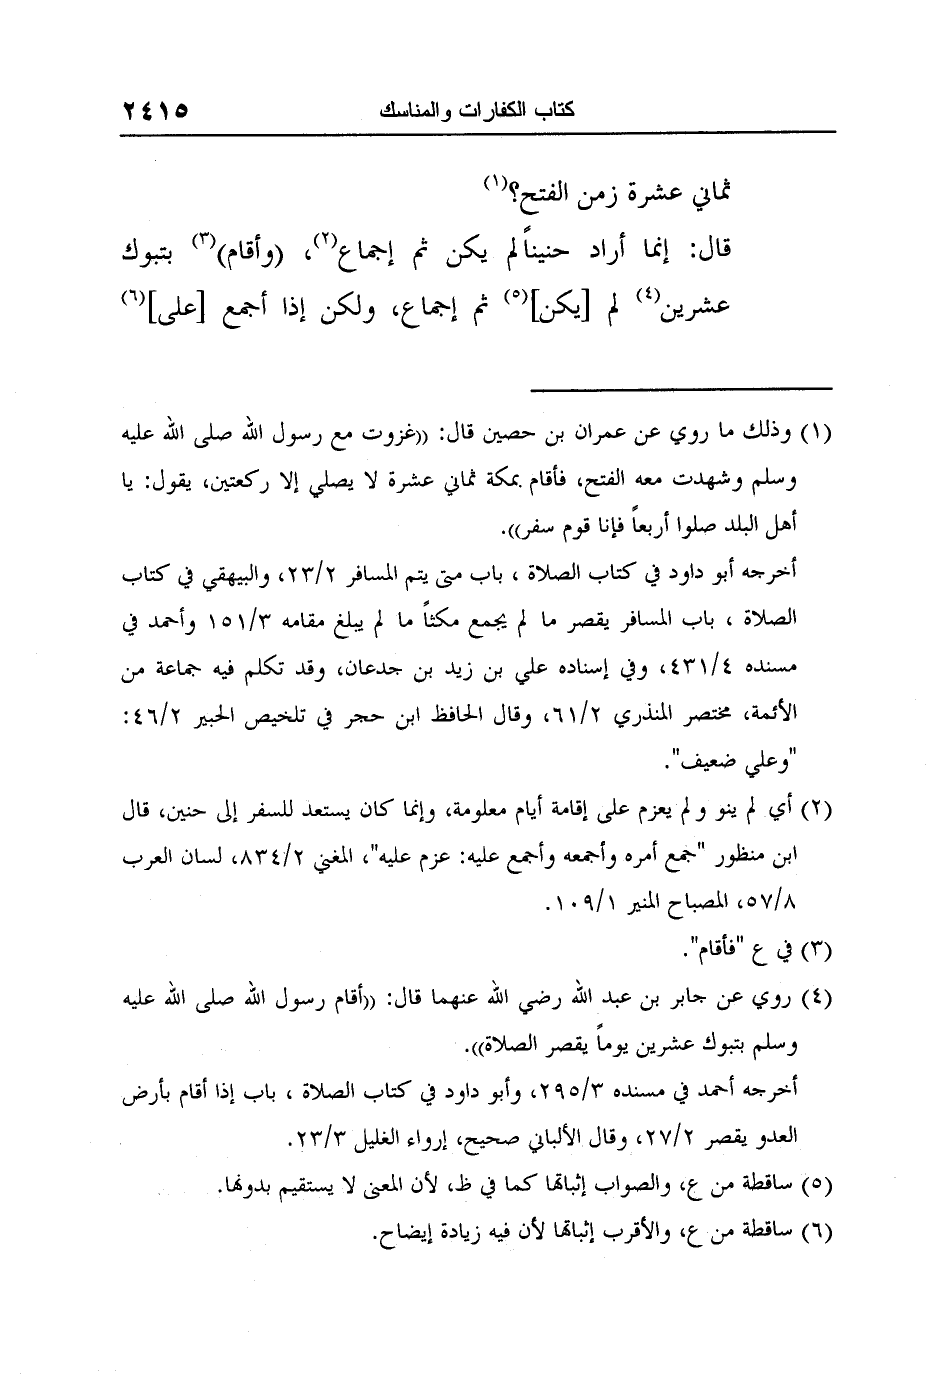 كتاب الكفارات والمناسك ٢٤١٥
ثماني عشرة زمن الفتح؟(١)
قال: إنما أراد حنيناً لم يكن ثم إجماع(٢)، (وأقام)(٣) بتبوك
عشرين(٤) لم [يكن](٥) ثم إجماع، ولكن إذا أجمع [على](٦)
(١) وذلك ما روي عن عمران بن حصين قال: ((غزوت مع رسول الله صلى الله عليه
وسلم وشهدت معه الفتح، فأقام بمكة ثماني عشرة لا يصلي إلا ركعتين، يقول: يا
أهل البلد صلوا أربعاً فإنا قوم سفر)).
أخرجه أبو داود في كتاب الصلاة ، باب متى يتم المسافر ٢٣/٢، والبيهقي في كتاب
الصلاة ، باب المسافر يقصر ما لم يجمع مكثاً ما لم يبلغ مقامه ١٥١/٣ وأحمد في
مسنده ٤٣١/٤، وفي إسناده علي بن زيد بن جدعان، وقد تكلم فيه جماعة من
الأئمة، مختصر المنذري ٦١/٢، وقال الحافظ ابن حجر في تلخيص الحبير ٤٦/٢:
"وعلي ضعيف".
(٢) أي لم ينو ولم يعزم على إقامة أيام معلومة، وإنما كان يستعد للسفر إلى حنين، قال
ابن منظور "جمع أمره وأجمعه وأجمع عليه: عزم عليه"، المغني ٨٣٤/٢، لسان العرب
٥٧/٨، المصباح المنير ١٠٩/١.
(٣) في ع "فأقام".
(٤) روي عن جابر بن عبد الله رضي الله عنهما قال: ((أقام رسول الله صلى الله عليه
وسلم بتبوك عشرين يوماً يقصر الصلاة)).
أخرجه أحمد في مسنده ٢٩٥/٣، وأبو داود في كتاب الصلاة ، باب إذا أقام بأرض
العدو يقصر ٢٧/٢، وقال الألباني صحيح، إرواء الغليل ٢٣/٣.
(٥) ساقطة من ع، والصواب إثباتها كما في ظ، لأن المعنى لا يستقيم بدونها.
(٦) ساقطة من ع، والأقرب إثباتها لأن فيه زيادة إيضاح.